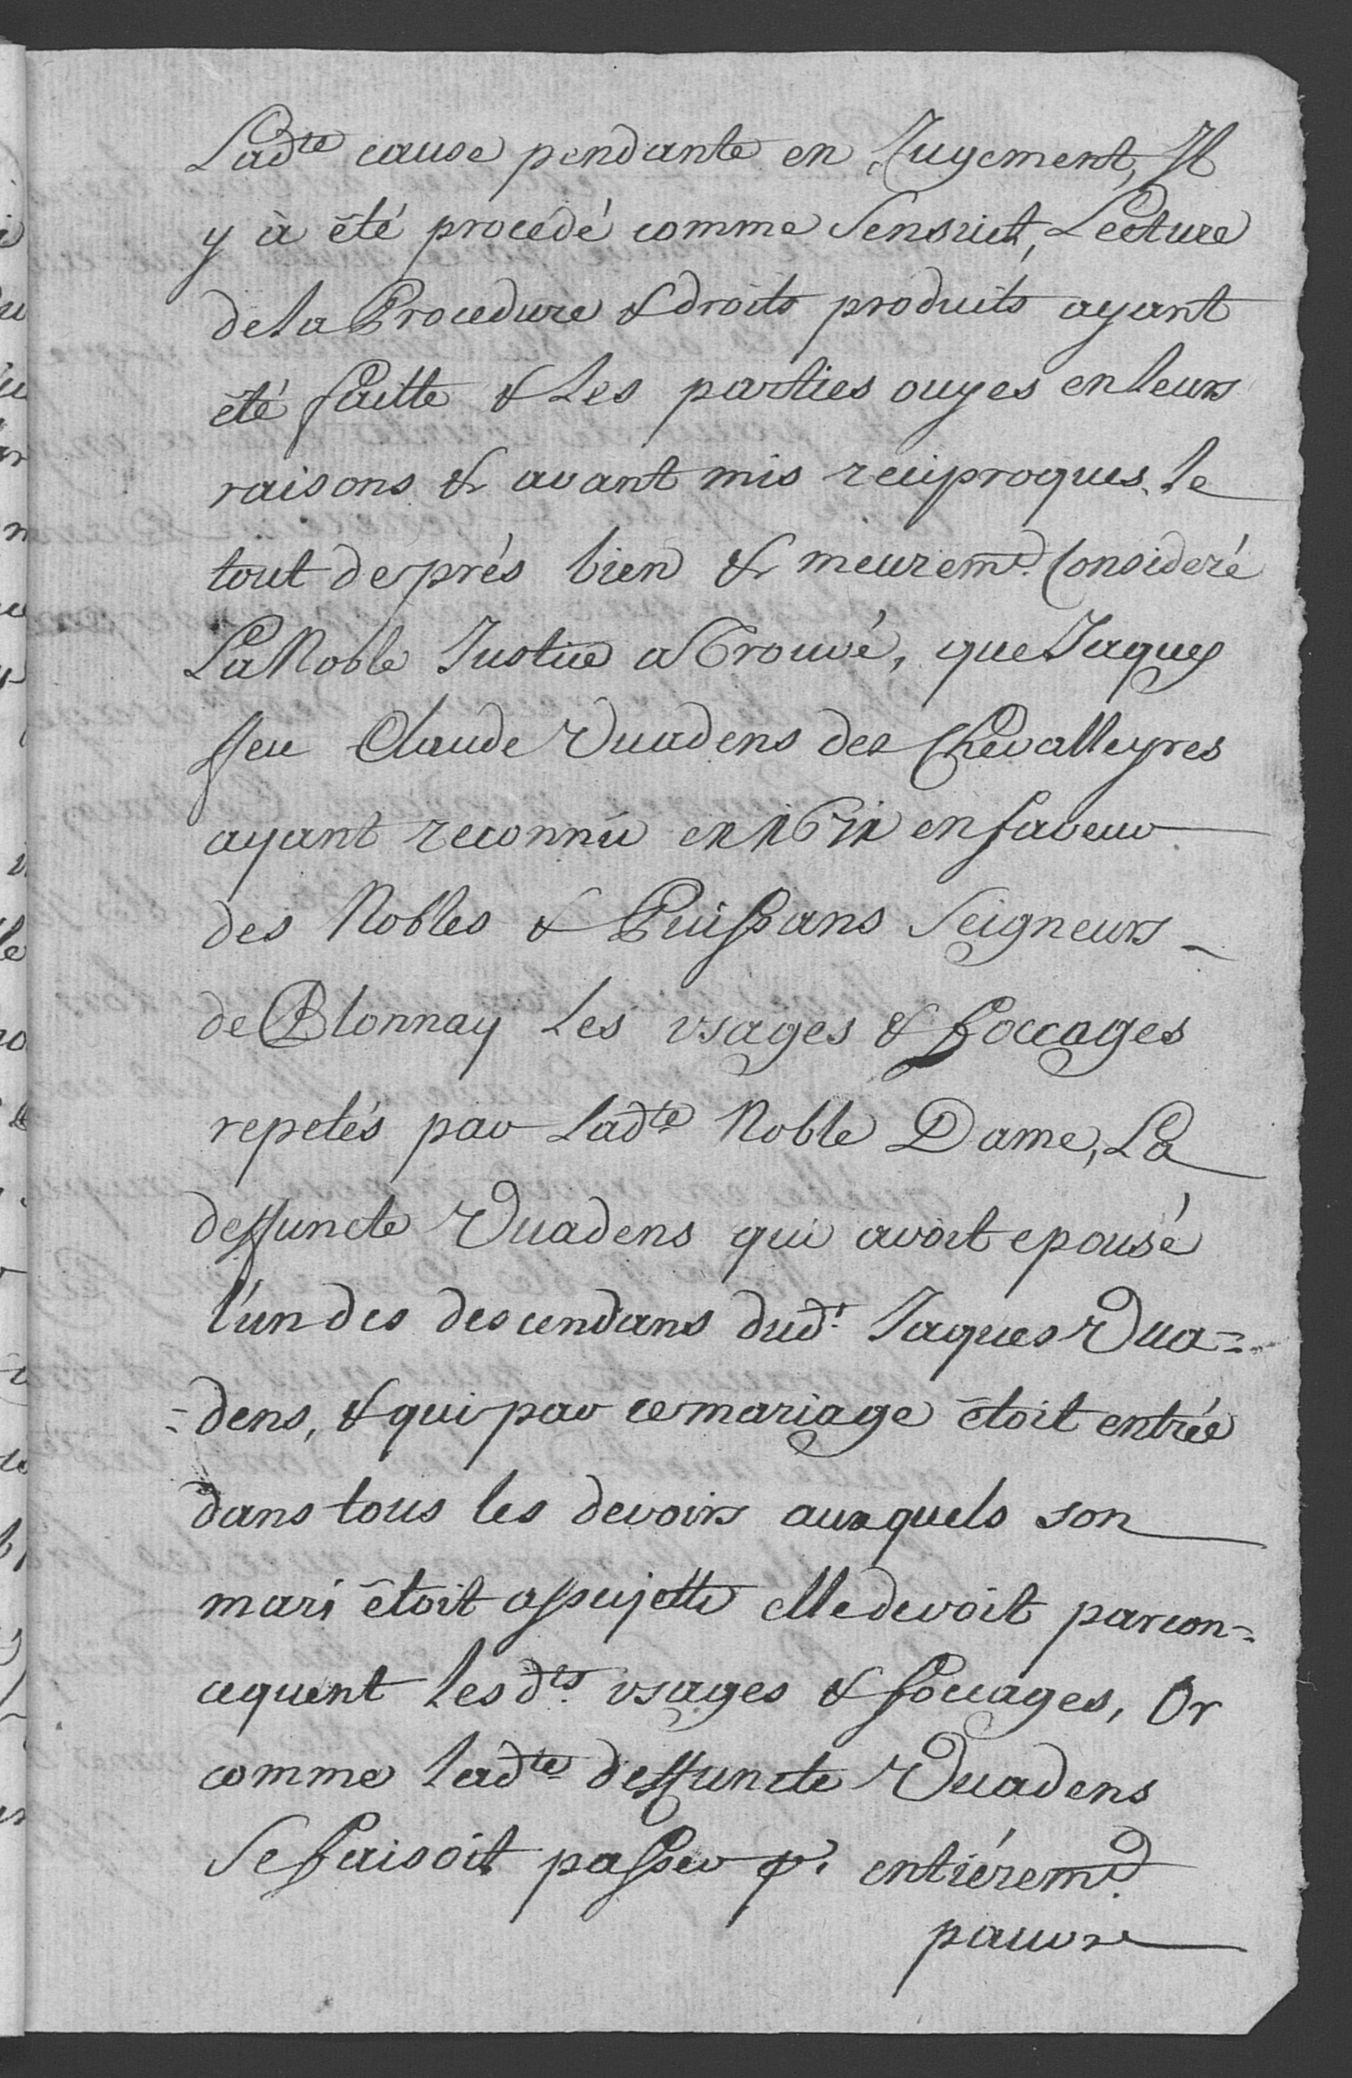 Lad.te cause pendante en Jugement, Il
y à été procédé comme Sensuit, Lecture
de la Procedure & droits produits ayant
été faitte & Les parties ouyes en leurs
raisons & avant mis reciproques, le
tout de prés bien & meurem.t Consideré
La Noble Justice a Trouvé, que Jaques
ffeu Claude Vuadens des Chevalleyres
ayant reconnû en 1671 en faveur
des Nobles & Puissans Seigneurs
de Blonnay Les usages & foccages
repetés par Lad.te Noble Dame, La
deffuncte Vuadens qui avoit epousé
l'un des descendans dud.t Jaques Vua=
=dens, & qui par ce mariage étoit entrée
dans tous les devoirs auxquels son
mari étoit assujetti elle devoit parcon=
cequent Les d.ts usages & foccages, Or
comme lad.te deffuncte Vuadens
Se faisoit passer p.r entiérem.t
pauvre